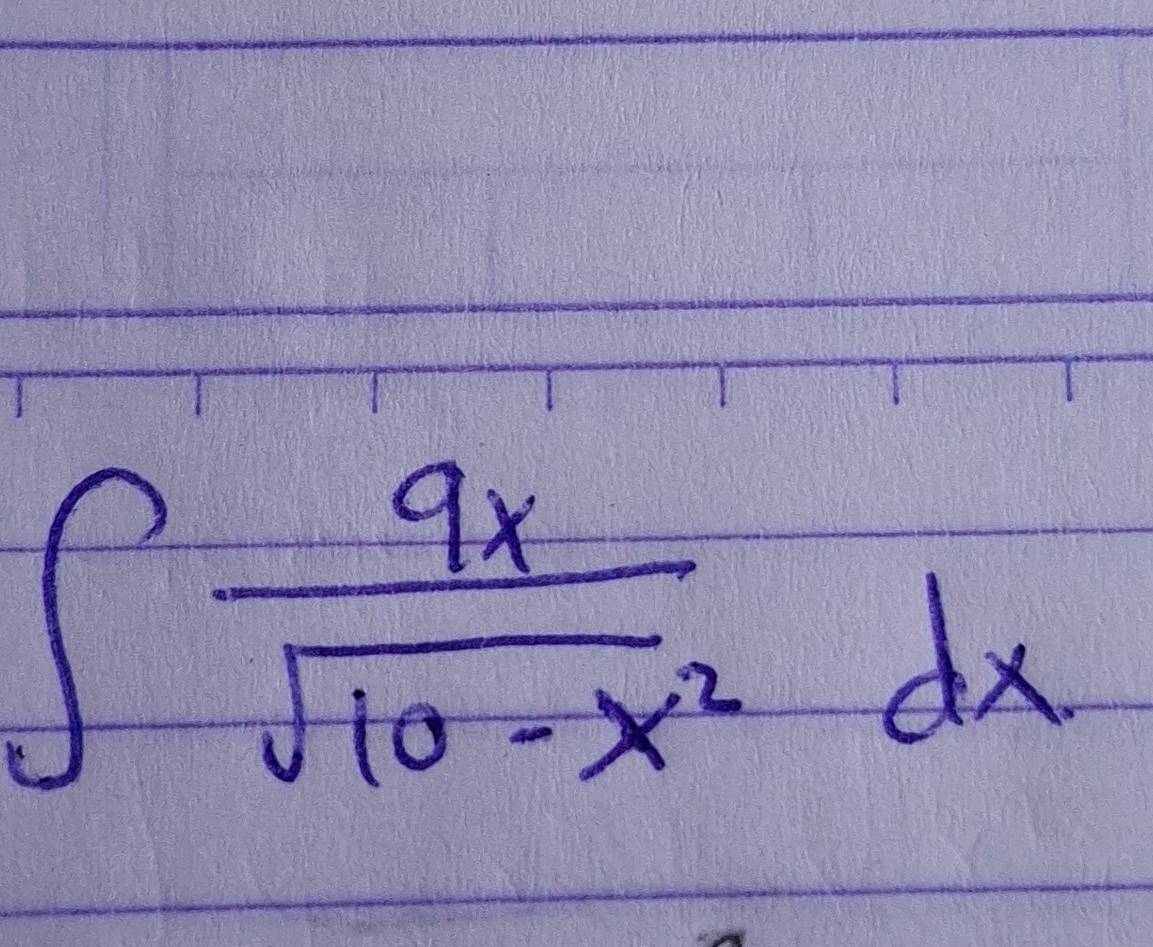 ∫ 9x / √(10 - x²) dx.